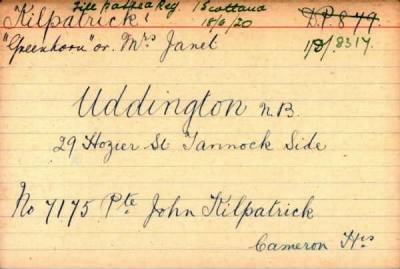 File passed Reg. Scotland
"Kilpatrick" 18/6/20 D.P. 879
"Greenhorn" or. Mrs Janet 8317
Uddington N.B.
29 Hozier St Tannock Side
No 7175 Pte John Kilpatrick
Cameron Hrs